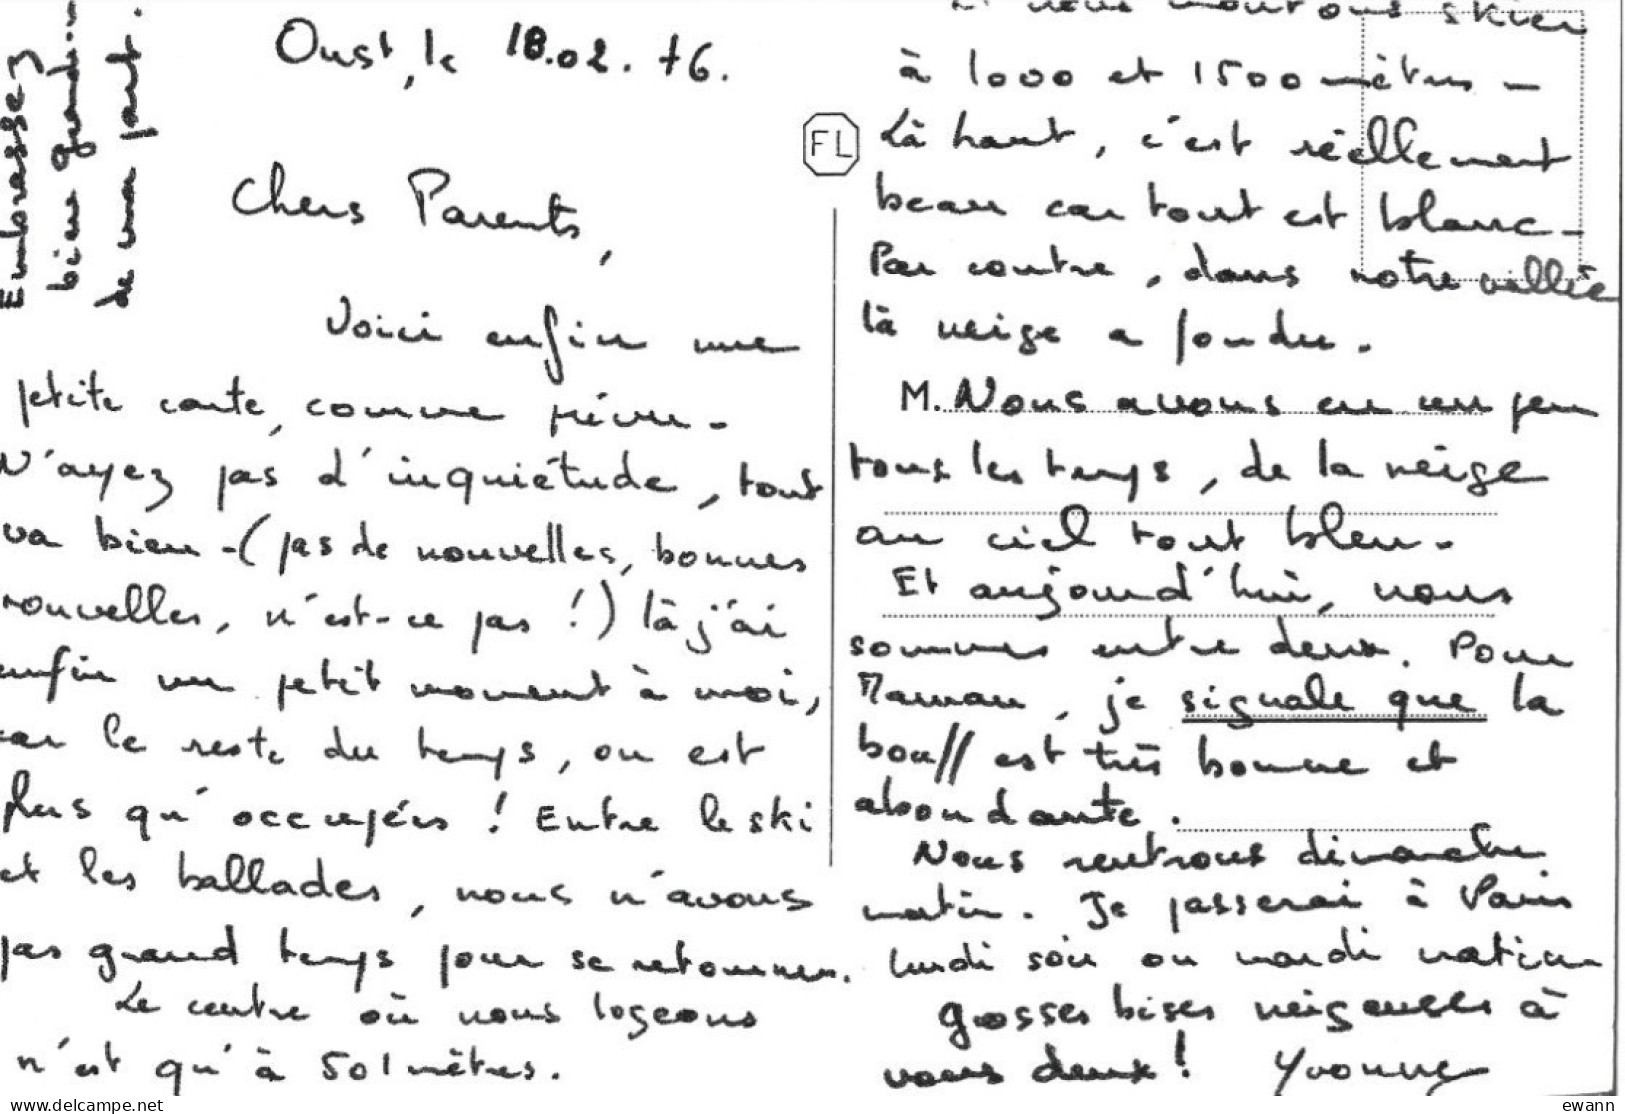 Oust, le 18.02.76.
Chers Parents,
Voici enfin une
petite carte, comme prévu -
N'ayez pas d'inquiétude, tout
va bien - (pas de nouvelles, bonnes
nouvelles, n'est-ce pas !) là j'ai
enfin un petit moment à moi,
car le reste du temps, on est
plus qu'occupées ! Entre le ski
et les ballades, nous n'avons
pas grand temps pour se retourner.
Le centre où nous logeons
n'est qu'à 501 mètres.
Et nous montons skier
à 1000 et 1500 mètres -
Là haut, c'est réellement
beau car tout est blanc -
Par contre, dans notre vallée
là neige a fondu.
M. Nous avons eu un peu
tous les temps, de la neige
au ciel tout bleu -
Et aujourd'hui, nous
sommes entre deux. Pour
Maman, je signale que la
bouff est très bonne et
abondante.
Nous rentrons dimanche
matin. Je passerai à Paris
lundi soir ou mardi matin
grosses bises neigeuses à
vous deux ! Yvonne
Embrassez
bien grandi--
de ma part.
FL
www.delcampe.net
ewann